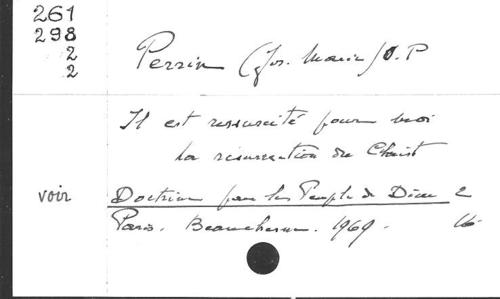 261
298
2
2
Perrin (Jos. Marie) O.P
Il est ressuscité pour moi
La résurrection du Christ
voir Doctrine pour le Peuple de Dieu 2
Paris. Beauchesne. 1969.